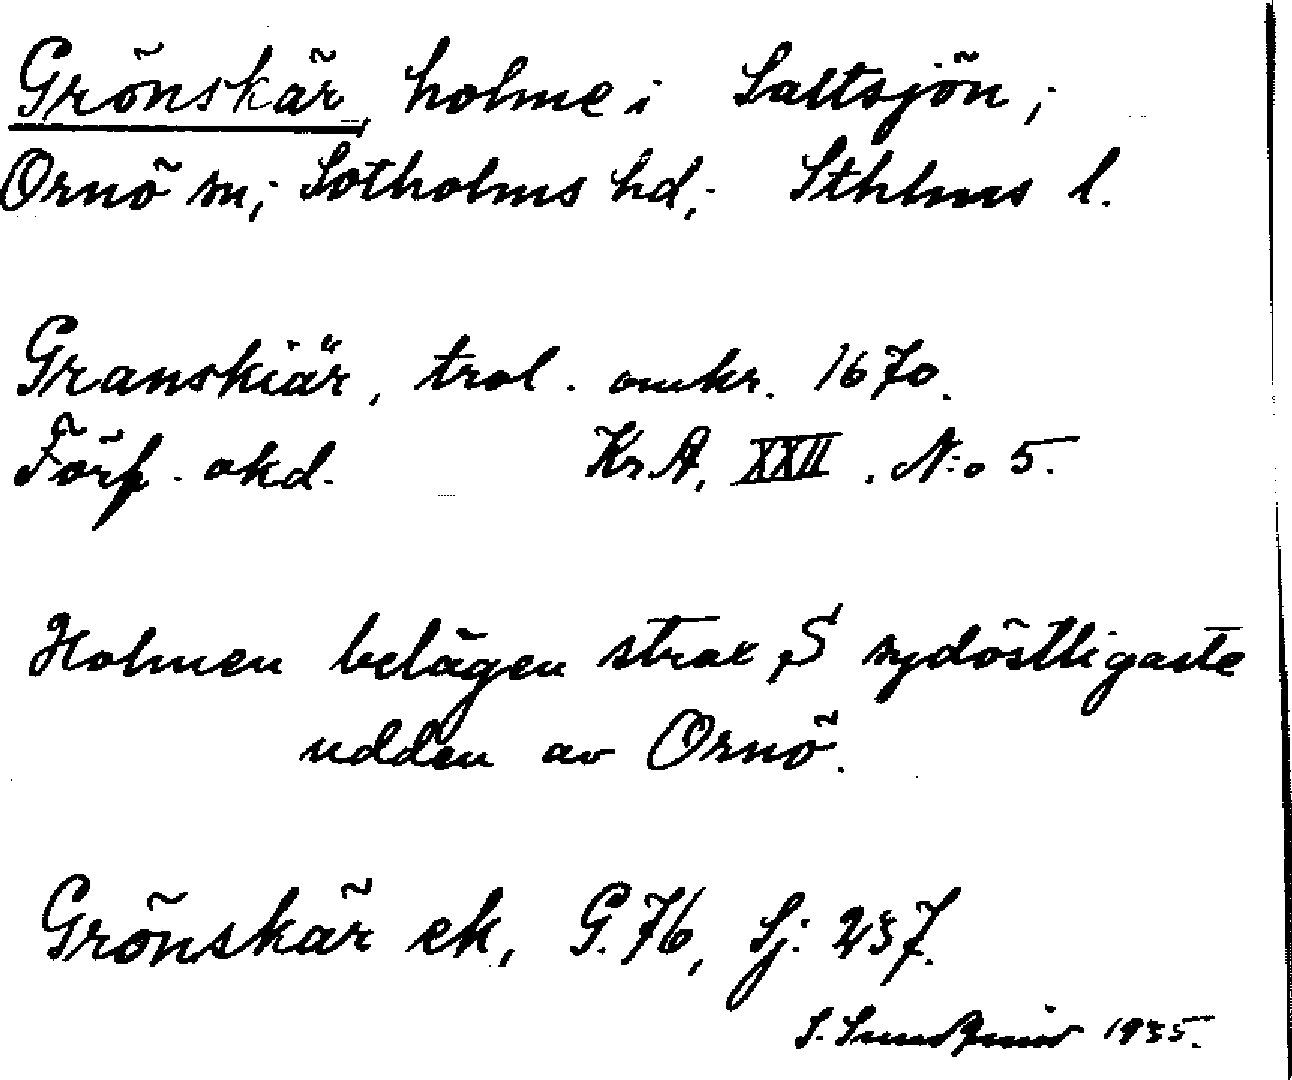 Grönskär, holme i Saltsjön;
Ornö sn; Sotholms hd; Sthlms l.
Granskiär, trol. omkr. 1670.
Förf. okd. Kr.A, XXII. N:o 5.
Holmen belägen strax S sydöstligaste
udden av Ornö.
Grönskär ek, G.76, Sj: 237.
S. 1935.